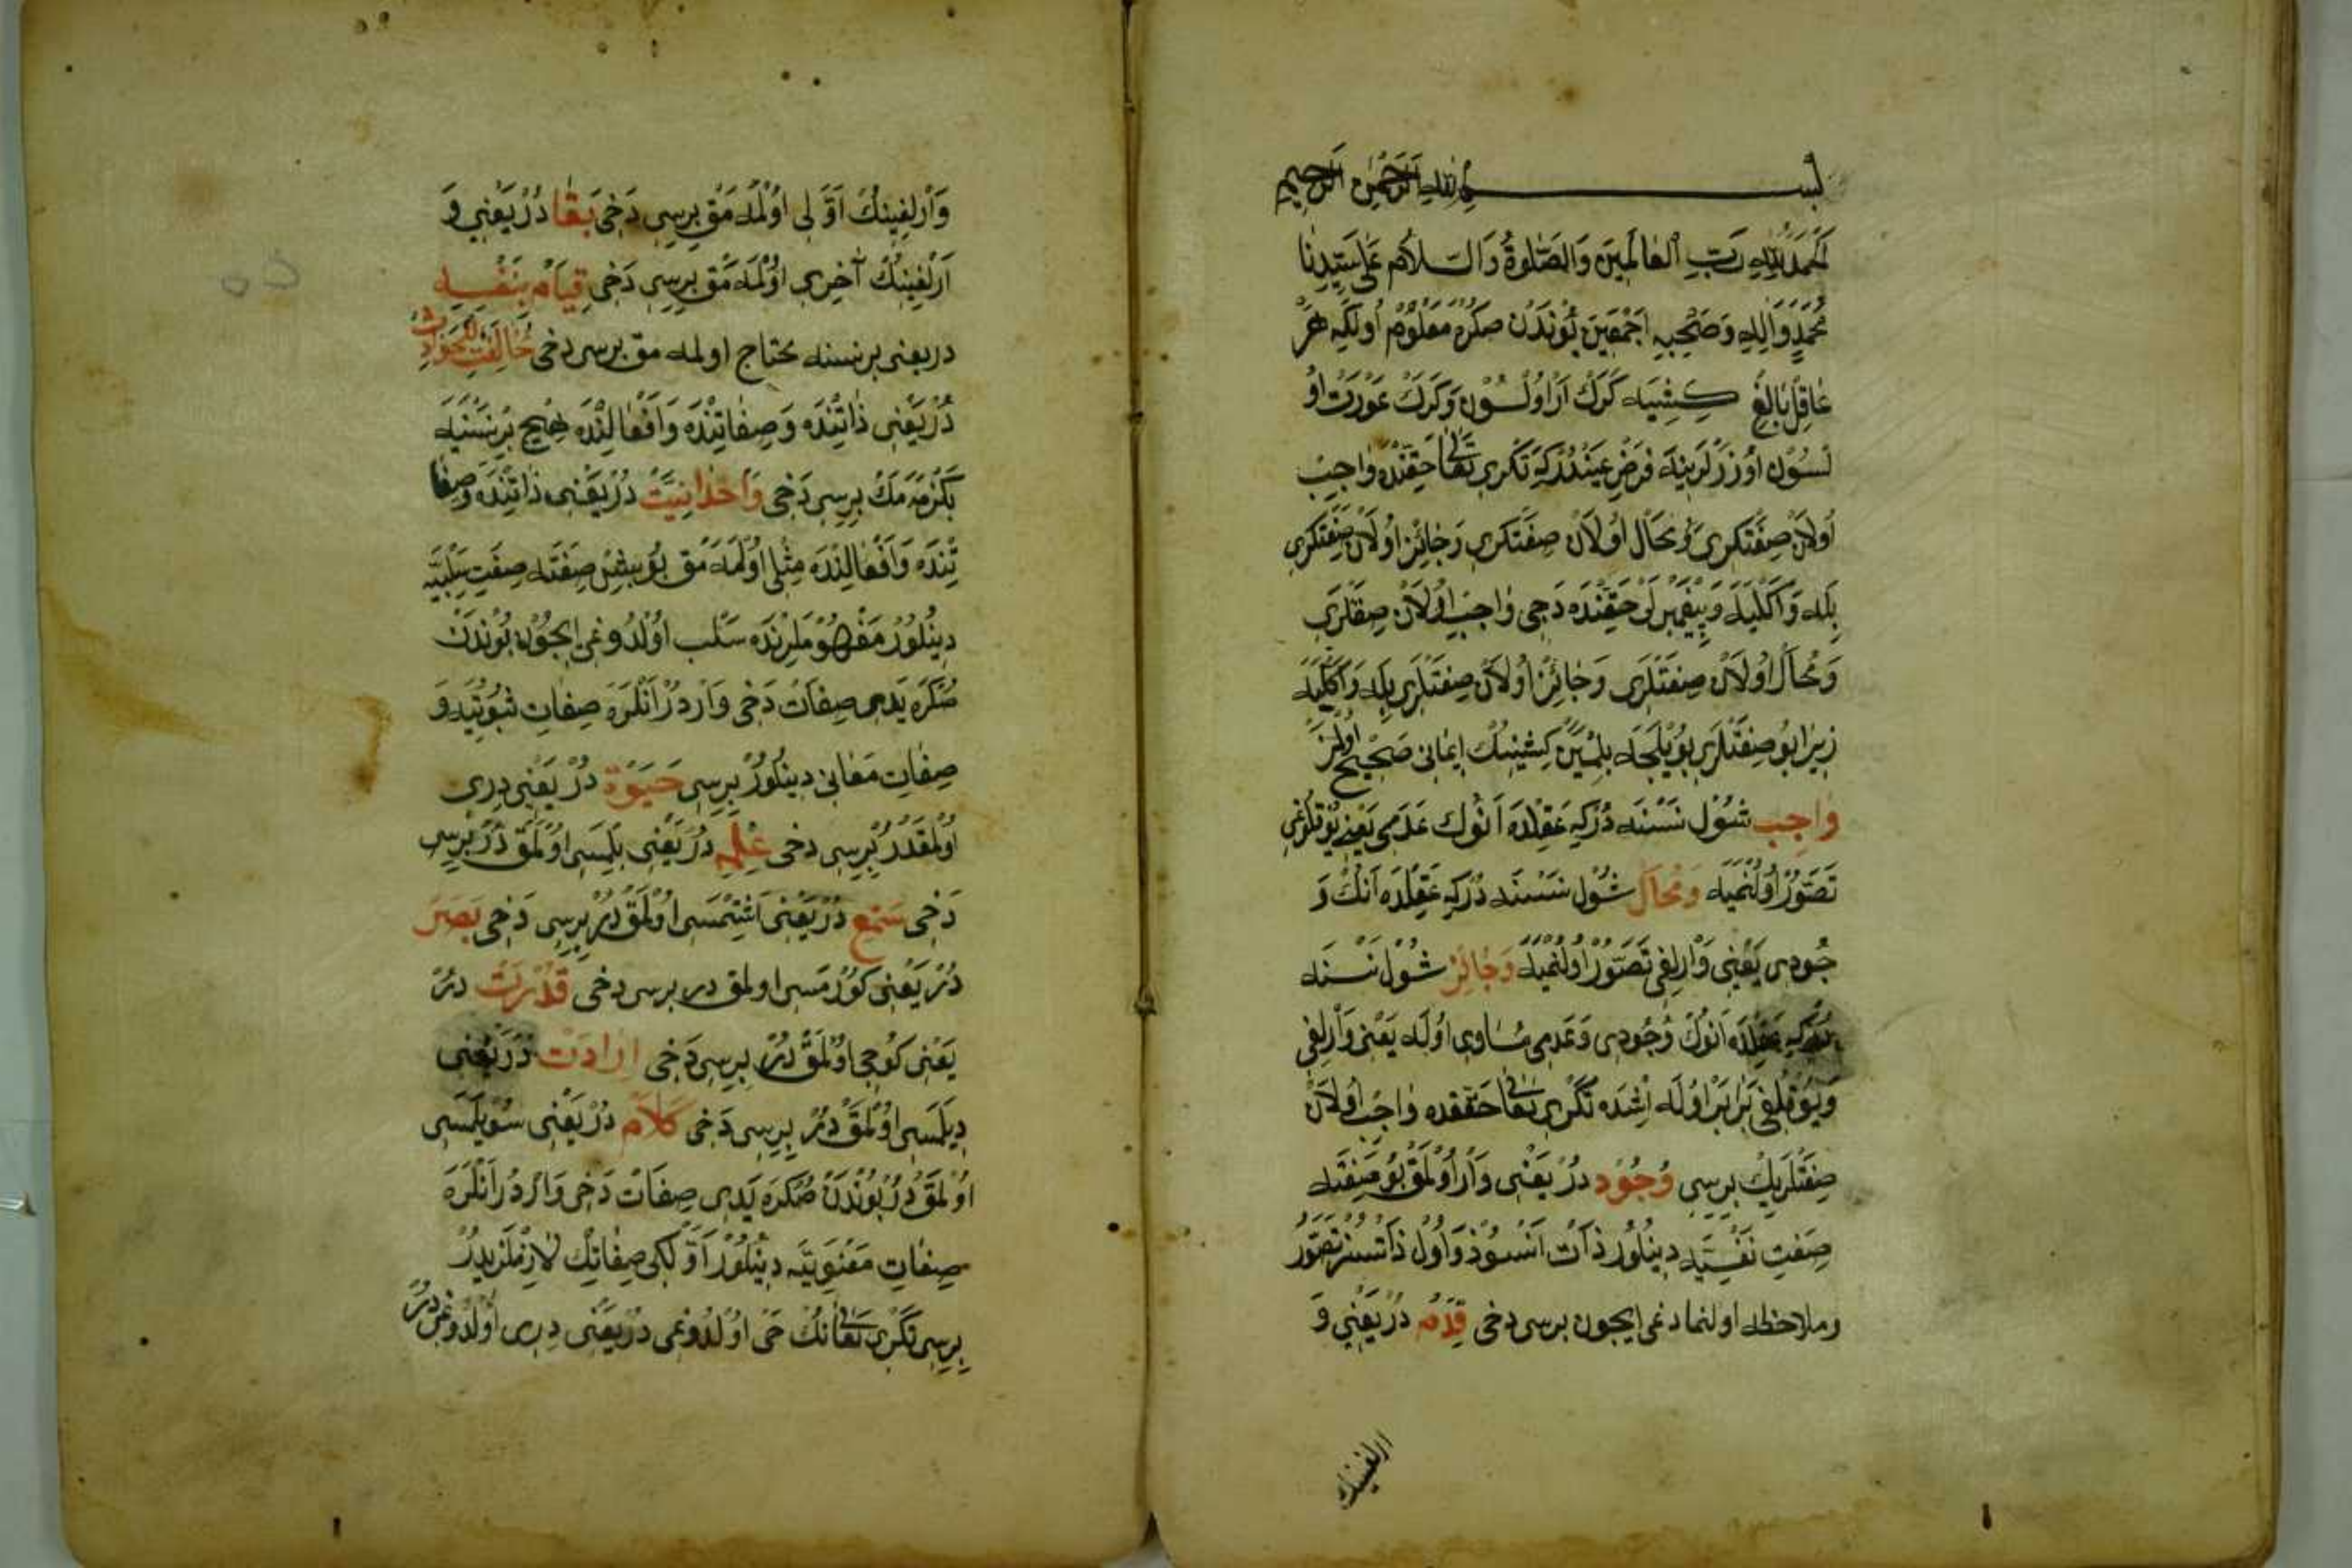 بسم الله الرحمن الرحيم
الحمد لله رب العالمين والصلوة والسلام على سيدنا
محمد واله وصحبه اجمعين بوندن صكره معلوم اولكه هر
عاقل بالغ كشيه كرك ار اولسون وكرك عورت او
لسون اوزرلرينه فرض عيندركه تكري تعالى حقنده واجب
اولان صفتلري ومحال اولان صفتلري وجائز اولان صفتلري
بله واكليه وپيغمبرلر حقنده دخي واجب اولان صفتلري
ومحال اولان صفتلري وجائز اولان صفتلري بله واكليه
زيرا بو صفتلري بويلجه بلمين كشينك ايماني صحيح اولمز
واجب شول نسنه دركه عقلده انوك عدمي يعني يوقلغي
تصور اولنميه ومحال شول نسنه دركه عقلده انك و
جودي يعني وارلغي تصور اولنميه وجائز شول نسنه
دركه عقلده انوك وجودي وعدمي مساوي اوله يعني وارلغي
ويوقلغي برابر اوله اشده تكري تعالى حقنده واجب اولان
صفتلريك برسي وجود در يعني وار اولمق بو صفته
صفت نفسيه دينلور ذات انسوز واول ذاتسز تصور
وملاحظه اولنمادغي ايچون برسي دخي قدم در يعني و
ارلغينك
وارلغينك اولي اولمه مق برسي دخي بقا در يعني و
ارلغينك آخري اولمه مق برسي دخي قيام بنفسه
در يعني بر نسنه يه محتاج اولمه مق برسي دخي مخالفت للحوادث
در يعني ذاتنده وصفاتنده وافعالنده هيچ بر نسنيه
بكزه مه مك برسي دخي واحدانيت در يعني ذاتنده وصفا
تنده وافعالنده مثلي اولمه مق بو بش صفته صفت سلبيه
دينلور مفهوملرنده سلب اولدوغي ايچون بوندن
صكره يدي صفات دخي واردر انلره صفات ثبوتيه و
صفات معاني دينلور برسي حيوة در يعني دري
اولمقدر برسي دخي علم در يعني بلمسي اولمق در برسي
دخي سمع در يعني اشتمسي اولمق در برسي دخي بصر
در يعني كورمسي اولمق در برسي دخي قدرت در
يعني كوجي اولمق در برسي دخي ارادت در يعني
ديلمسي اولمق در برسي دخي كلام در يعني سويلمسي
اولمق در بوندن صكره يدي صفات دخي واردر انلره
صفات معنويه دينلور اولكي صفاتك لازملريدر
برسي تكري تعالىنك حي اولدوغي در يعني دري اولدوغيدر